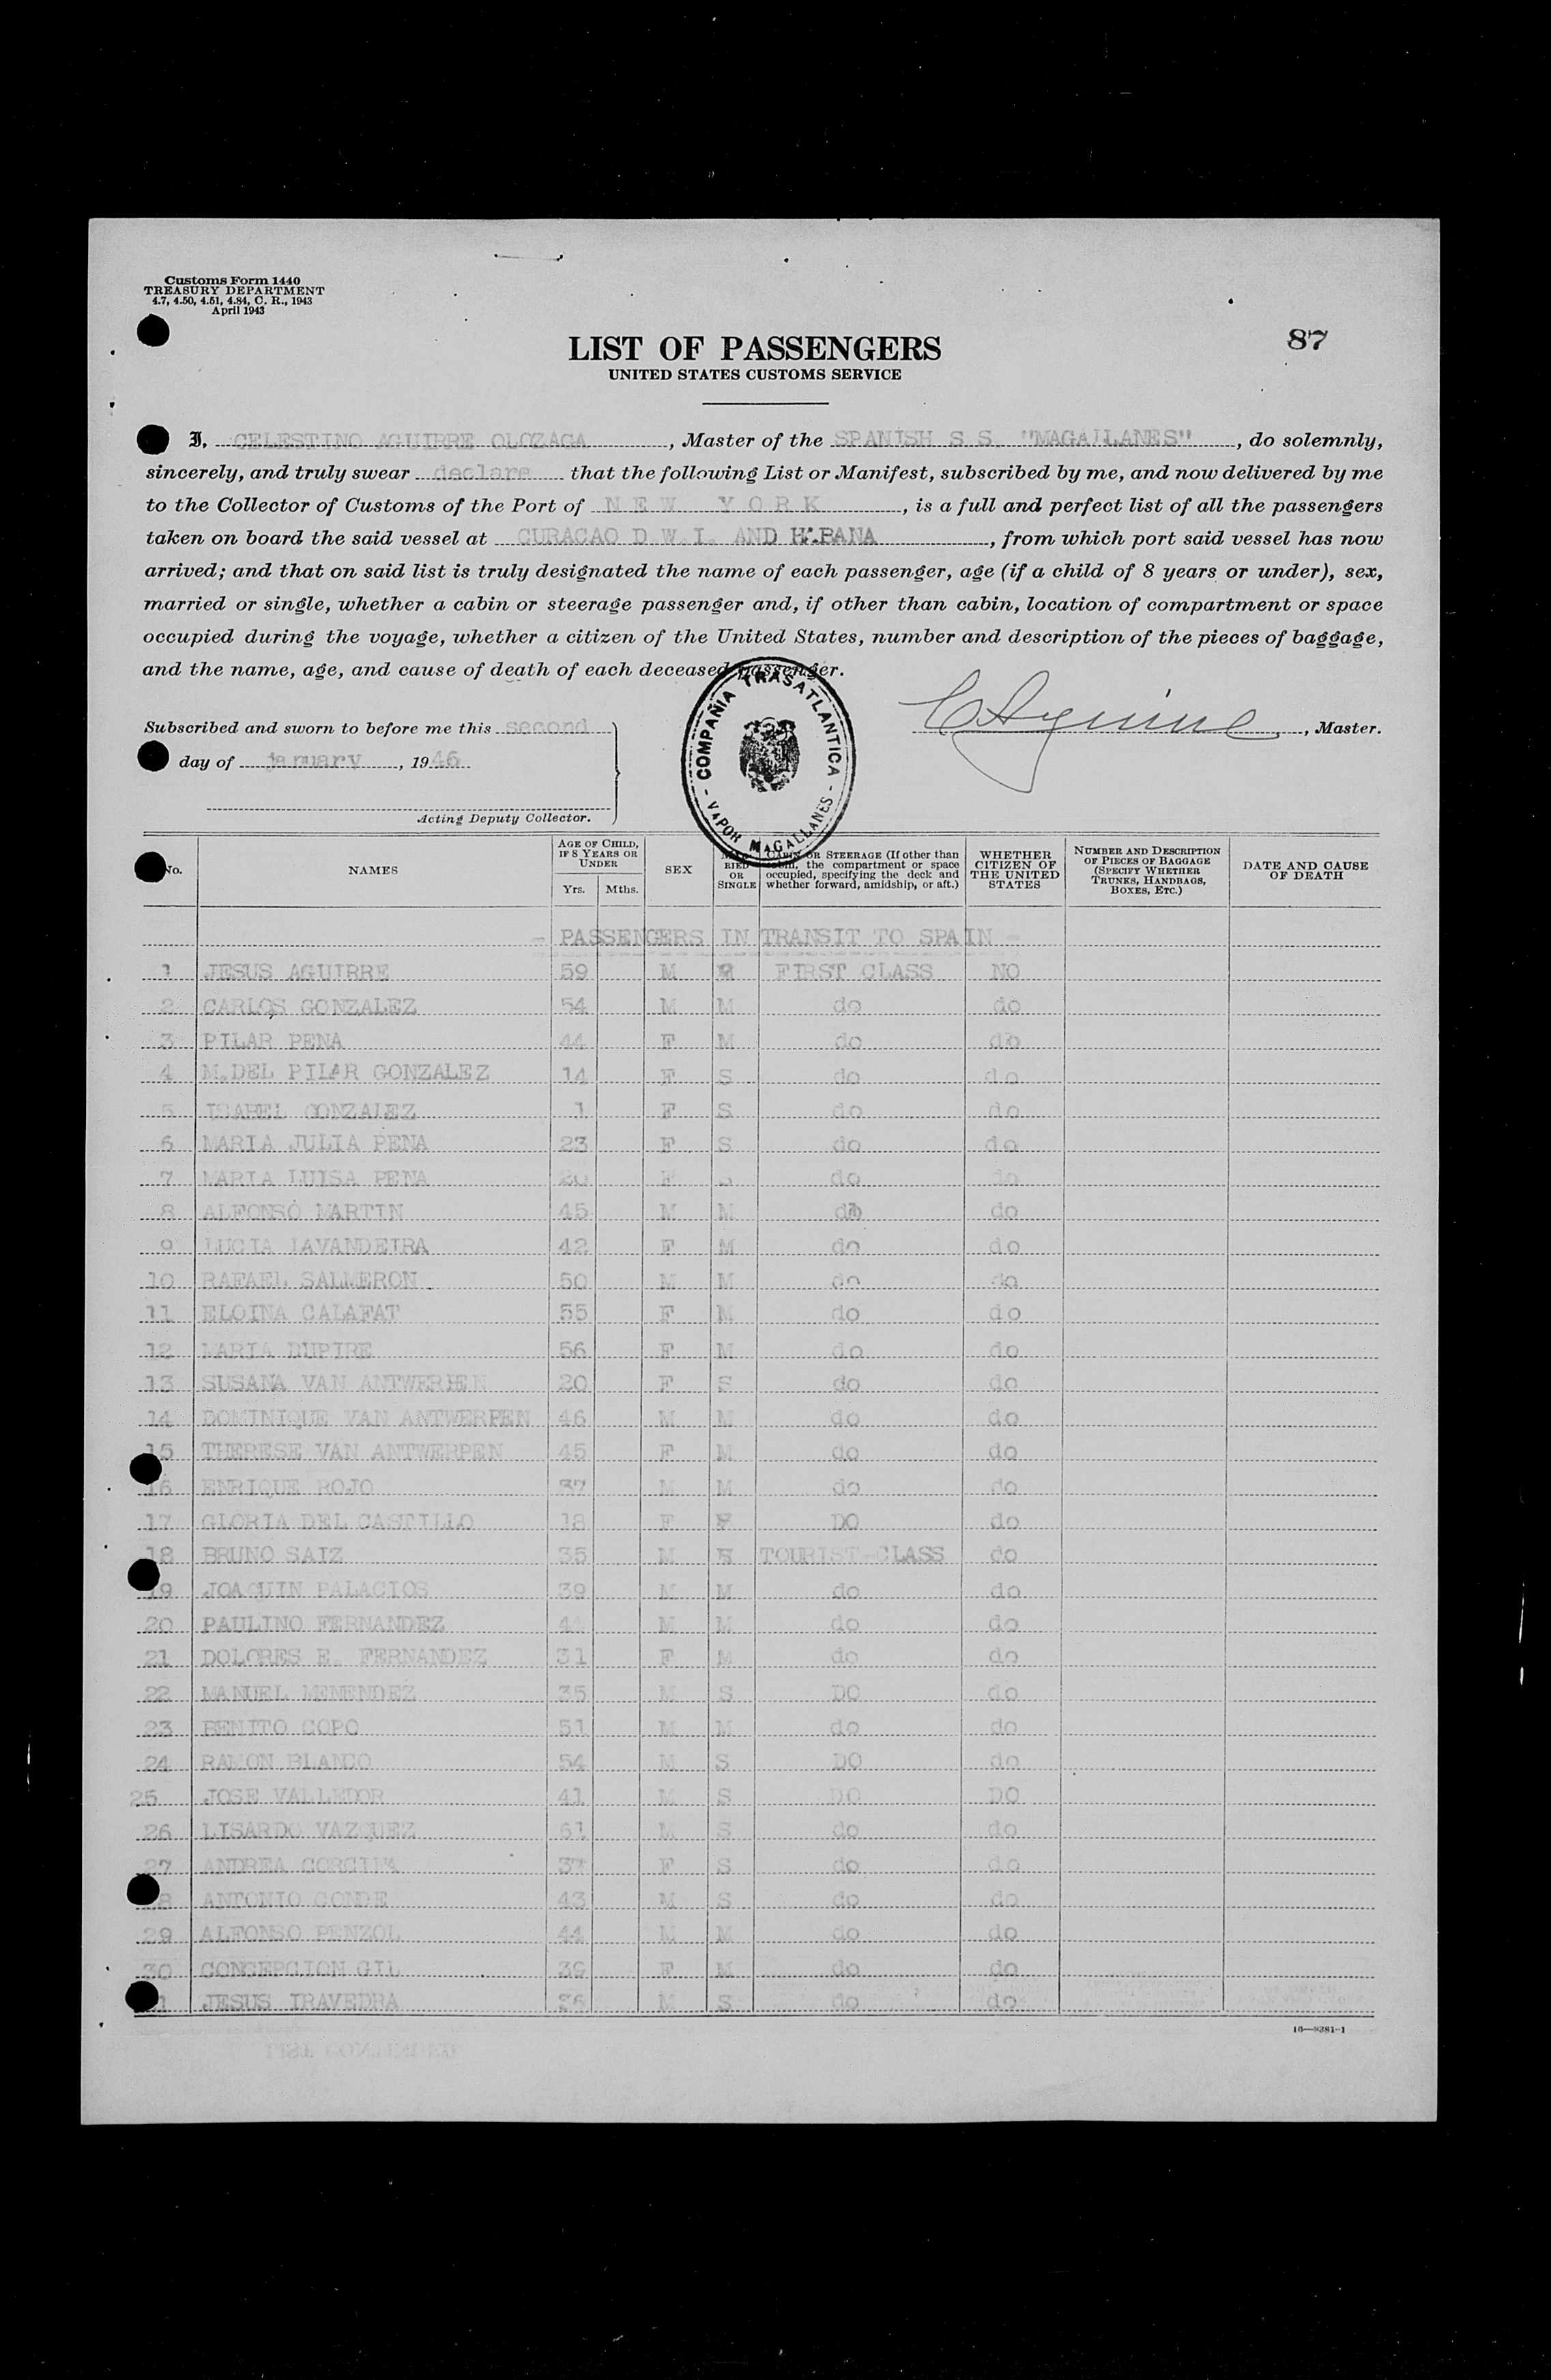 Customs Form 1440
TREASURY DEPARTMENT
4.7, 4.50, 4.51, 4.84, C. R., 1943
April 1943
87
LIST OF PASSENGERS
UNITED STATES CUSTOMS SERVICE
I, CELESTINO AGUIRRE OLOZAGA, Master of the SPANISH S.S. "MAGALLANES", do solemnly,
sincerely, and truly swear declare that the following List or Manifest, subscribed by me, and now delivered by me
to the Collector of Customs of the Port of NEW YORK, is a full and perfect list of all the passengers
taken on board the said vessel at CURACAO D.W.I. AND HABANA, from which port said vessel has now
arrived; and that on said list is truly designated the name of each passenger, age (if a child of 8 years or under), sex,
married or single, whether a cabin or steerage passenger and, if other than cabin, location of compartment or space
occupied during the voyage, whether a citizen of the United States, number and description of the pieces of baggage,
and the name, age, and cause of death of each deceased passenger.
COMPAÑIA TRASATLANTICA - VAPOR MAGALLANES -
Subscribed and sworn to before me this second
CAguirre, Master.
day of january, 1946
Acting Deputy Collector.
No. NAMES AGE OF CHILD, IF 8 YEARS OR UNDER Yrs. Mths. SEX MARRIED OR SINGLE CABIN OR STEERAGE (If other than cabin, the compartment or space occupied, specifying the deck and whether forward, amidship, or aft.) WHETHER CITIZEN OF THE UNITED STATES NUMBER AND DESCRIPTION OF PIECES OF BAGGAGE (SPECIFY WHETHER TRUNKS, HANDBAGS, BOXES, ETC.) DATE AND CAUSE OF DEATH
- PASSENGERS IN TRANSIT TO SPAIN -
1 JESUS AGUIRRE 59 M FIRST CLASS NO
2 CARLOS GONZALEZ 54 M M do do
3 PILAR PENA 44 F M do do
4 M.DEL PILAR GONZALEZ 14 F S do do
5 ISABEL GONZALEZ 1 F S do do
6 MARIA JULIA PENA 23 F S do do
7 MARIA LUISA PENA 20 F S do do
8 ALFONSO MARTIN 45 M M do do
9 LUCIA LAVANDEIRA 42 F M do do
10 RAFAEL SALMERON 50 M M do do
11 ELOINA CALAFAT 55 F M do do
12 MARIA DUPIRE 56 F M do do
13 SUSANA VAN ANTWERPEN 20 F S do do
14 DOMINIQUE VAN ANTWERPEN 46 M M do do
15 THERESE VAN ANTWERPEN 45 F M do do
16 ENRIQUE ROJO 37 M M do do
17 GLORIA DEL CASTILLO 18 F DO do
18 BRUNO SAIZ 35 M TOURIST-CLASS do
19 JOAQUIN PALACIOS 39 M M do do
20 PAULINO FERNANDEZ M M do do
21 DOLORES E. FERNANDEZ 31 F M do do
22 MANUEL MENENDEZ 35 M S DO do
23 BENITO COPO 51 M M do do
24 RAMON BLANCO 54 M S DO do
25 JOSE VALLEDOR 41 M S DO DO
26 LISARDO VAZQUEZ 61 M S do do
27 ANDREA 37 F S do do
28 ANTONIO CONDE 43 M S do do
29 ALFONSO PENZOL 44 M M do do
30 CONCEPCION GIL 39 F M do do
JESUS TRAVEDRA M S do do
16—9381-1